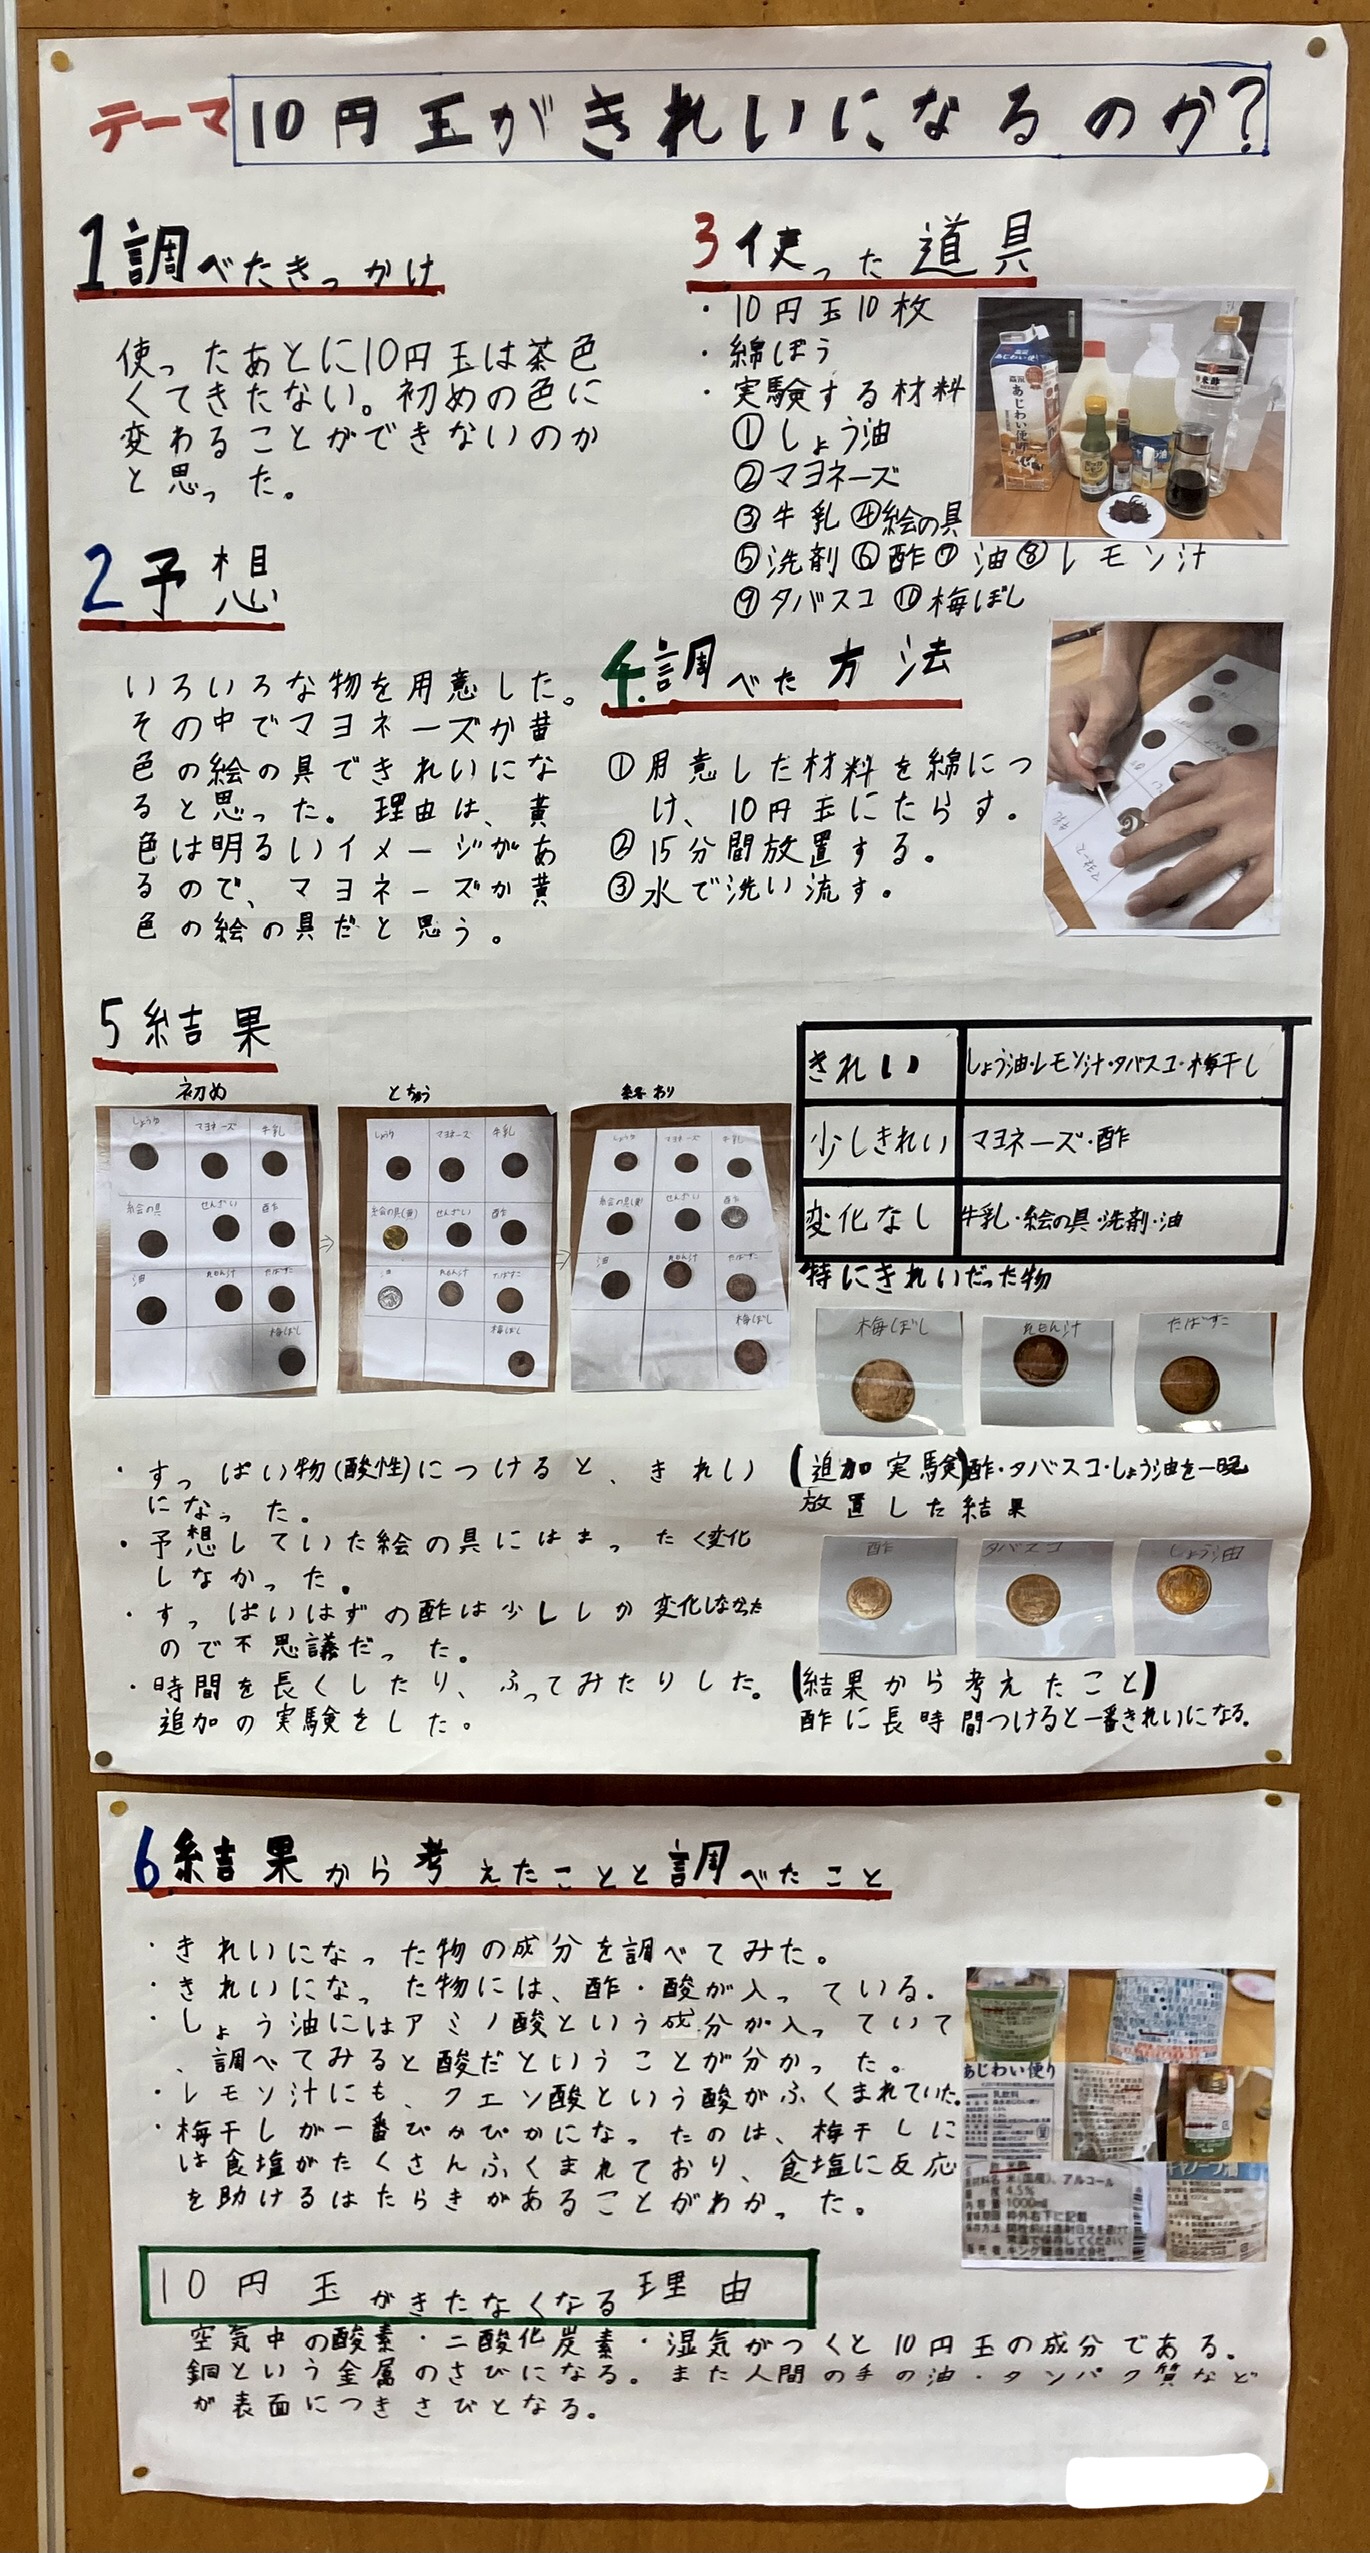 テーマ 10円玉がきれいになるのか?
1 調べたきっかけ
使ったあとに10円玉は茶色
くてきたない。初めの色に
変わることができないのか
と思った。
2 予想
いろいろな物を用意した。
その中でマヨネーズか黄
色の絵の具できれいにな
ると思った。理由は、黄
色は明るいイメージがあ
るので、マヨネーズか黄
色の絵の具だと思う。
3 使った道具
・10円玉10枚
・綿ぼう
・実験する材料
①しょう油
②マヨネーズ
③牛乳④絵の具
⑤洗剤⑥酢⑦油⑧レモン汁
⑨タバスコ⑩梅ぼし
あじわい便り
4.調べた方法
①用意した材料を綿につ
け、10円玉にたらす。
②15分間放置する。
③水で洗い流す。
5 結果
初め
しょうゆ マヨネーズ 牛乳
絵の具 せんざい 酢
油 れもん汁 たばすこ
梅ぼし
とちゅう
しょうゆ マヨネーズ 牛乳
絵の具(黄) せんざい 酢
油 れもん汁 たばすこ
梅ぼし
終わり
しょうゆ マヨネーズ 牛乳
絵の具(黄) せんざい 酢
油 れもん汁 たばすこ
梅ぼし
きれい しょう油・レモン汁・タバスコ・梅干し
少しきれい マヨネーズ・酢
変化なし 牛乳・絵の具・洗剤・油
特にきれいだった物
梅ぼし れもん汁 たばすこ
・すっぱい物(酸性)につけると、きれい
になった。
・予想していた絵の具にはまったく変化
しなかった。
・すっぱいはずの酢は少ししか変化しなかった
ので不思議だった。
・時間を長くしたり、ふってみたりした。
追加の実験をした。
【追加実験】酢・タバスコ・しょう油を一晩
放置した結果
酢 タバスコ しょう油
【結果から考えたこと】
酢に長時間つけると一番きれいになる。
6 結果から考えたことと調べたこと
・きれいになった物の成分を調べてみた。
・きれいになった物には、酢・酸が入っている.
・しょう油にはアミノ酸という成分が入っていて
、調べてみると酸だということが分かった。
・レモン汁にも、クエン酸という酸がふくまれていた。
・梅干しが一番ぴかぴかになったのは、梅干しに
は食塩がたくさんふくまれており、食塩に反応
を助けるはたらきがあることがわかった。
あじわい便り
乳飲料
米(国産)、アルコール
4.5%
1000ml
枠外右下に記載
10円玉がきたなくなる理由
空気中の酸素・二酸化炭素・湿気がつくと10円玉の成分である。
銅という金属のさびになる。また人間の手の油・タンパク質など
が表面につきさびとなる。